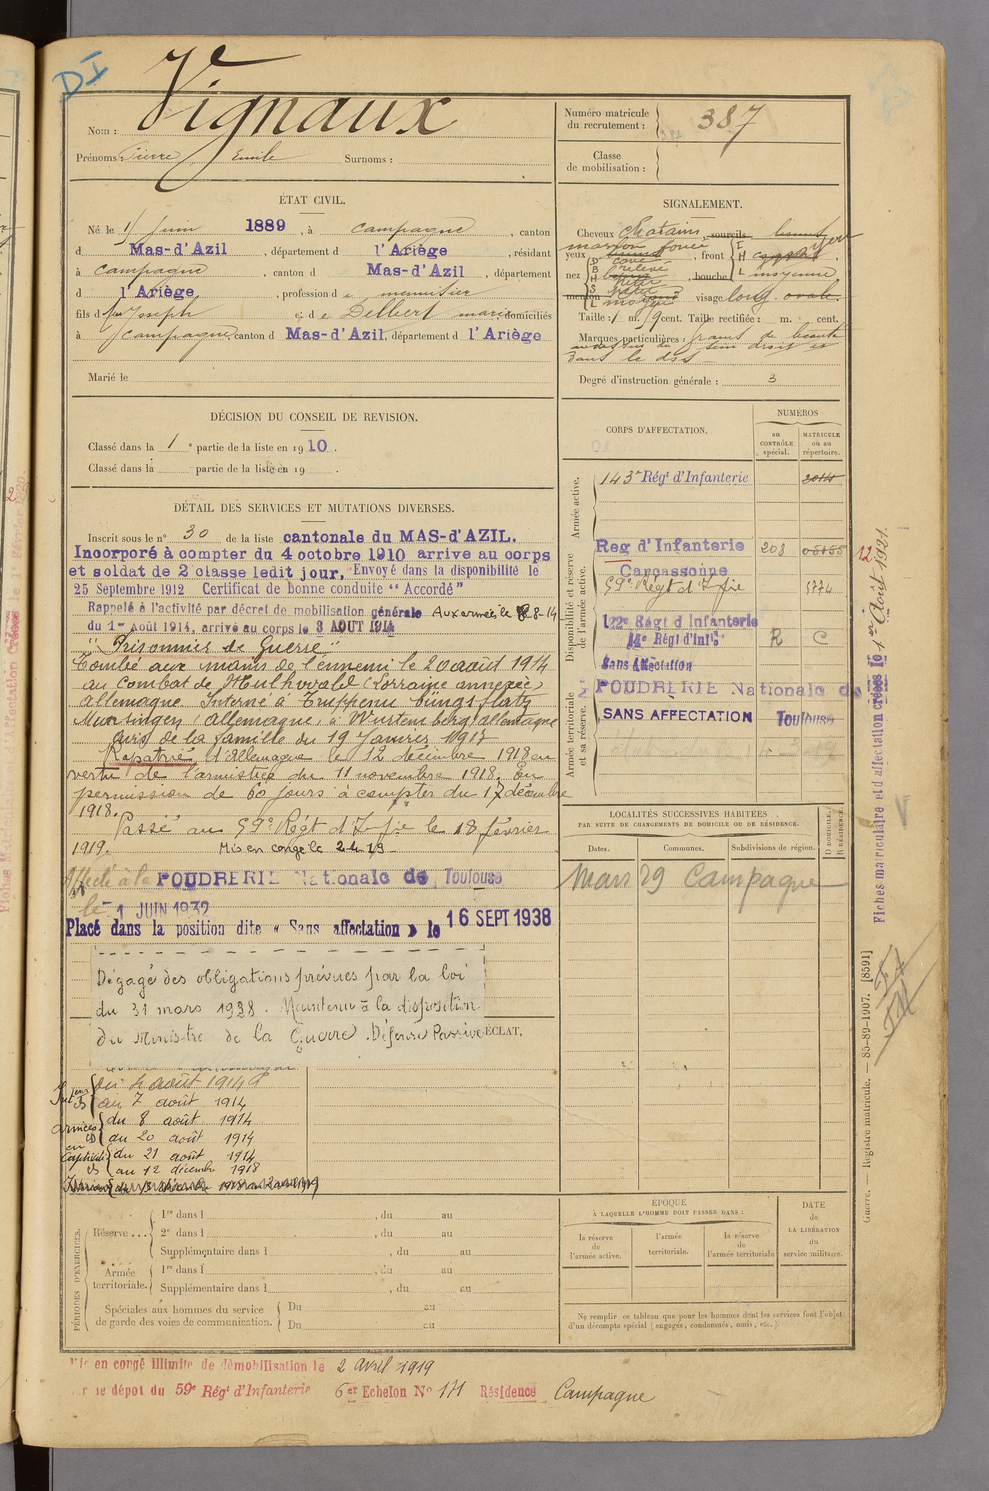 DI
Nom : Vignaux
Prénoms : Pierre Emile Surnoms :
Numéro matricule
du recrutement : 387
Classe
de mobilisation :
ÉTAT CIVIL.
Né le 1 Juin 1889, à Campagne, canton
d Mas-d'Azil, département d l'Ariège, résidant
à Campagne, canton d Mas-d'Azil, département
d l'Ariège, profession d e menuisier
fils d feu Joseph et d e Delbert Marie domiciliés
à Campagne, canton d Mas-d'Azil, département d l'Ariège
Marié le
SIGNALEMENT.
Cheveux Chatains, sourcils
yeux marron foncé, front
nez, bouche moyenne
menton visage long ovale.
Taille : 1 m. cent. Taille rectifiée : m. cent.
Marques particulières : grains de beauté
au dessus du sein droit et
dans le dos
Degré d'instruction générale : 3
DÉCISION DU CONSEIL DE REVISION.
Classé dans la 1e partie de la liste en 1910.
Classé dans la partie de la liste en 19 .
DÉTAIL DES SERVICES ET MUTATIONS DIVERSES.
Inscrit sous le n° 30 de la liste cantonale du MAS-d'AZIL.
Incorporé à compter du 4 octobre 1910 arrive au corps
et soldat de 2 classe ledit jour, Envoyé dans la disponibilité le
25 Septembre 1912 Certificat de bonne conduite "Accordé"
Rappelé à l'activité par décret de mobilisation générale Aux armées le 8-8-14
du 1er Août 1914, arrivé au corps le 3 AOUT 1914
"Prisonnier de Guerre"
Tombé aux mains de l'ennemi le 20 août 1914
au Combat de (Lorraine annexée)
allemagne. Interné à
Munsingen (allemagne) à Wurtemberg allemagne
avis de la famille du 19 Janvier 1915
Rapatrié d'Allemagne le 12 décembre 1918 en
vertu de l'armistice du 11 novembre 1918. En
permission de 60 jours à compter du 17 décembre
1918.
Passé au 59e Régt d'Infie le 18 février
1919. Mis en congé le 2-4-19
Affecté à la POUDRERIE Nationale de Toulouse
le 1 JUIN 1932
Placé dans la position dite « Sans affectation » le 16 SEPT 1938
Dégagé des obligations prévues par la loi
du 31 mars 1928. Maintenu à la disposition
du Ministre de la Guerre. Défense Passive
ÉCLAT,
Intérieur du 4 août 1914
au 7 août 1914
armées du 8 août 1914
au 20 août 1914
en Captivité du 21 août 1914
au 12 décembre 1918
CORPS D'AFFECTATION.
NUMÉROS
au
CONTRÔLE
spécial.
MATRICULE
ou au
répertoire.
Armée active.
143e Régt d'Infanterie
Disponibilité et réserve
de l'armée active.
Reg d'Infanterie 208
Carcassonne
59e Régt d'Infie 5774
122e Régt d Infanterie
14e Régt d'Infie R C
Sans Affectation
Armée territoriale
et sa réserve.
POUDRERIE Nationale de
SANS AFFECTATION Toulouse
LOCALITÉS SUCCESSIVES HABITÉES
PAR SUITE DE CHANGEMENTS DE DOMICILE OU DE RÉSIDENCE.
Dates. Communes. Subdivisions de région.
D DOMICILE.
R RÉSIDENCE.
Mars 29 Campagne
PÉRIODES D'EXERCICES.
Réserve...
1re dans l , du au
2e dans l , du au
Supplémentaire dans l , du au
Armée
territoriale.
1re dans l , du au
Supplémentaire dans l , du au
Spéciales aux hommes du service
de garde des voies de communication.
Du au
Du au
ÉPOQUE
À LAQUELLE L'HOMME DOIT PASSER DANS :
la réserve
de
l'armée active.
l'armée
territoriale.
la réserve
de
l'armée territoriale
DATE
de
LA LIBÉRATION
du
service militaire.
Ne remplir ce tableau que pour les hommes dont les services font l'objet
d'un décompte spécial (engagés, condamnés, omis, etc.).
en congé illimité de démobilisation le 2 avril 1919
le dépot du 59e Régt d'Infanterie 6er Echelon N° 171 Résidence Campagne
12 Fiches matriculaire et d'affectation créées le 1er Août 1921.
Guerre. — Registre matricule. — 85-89-1907. [8591]